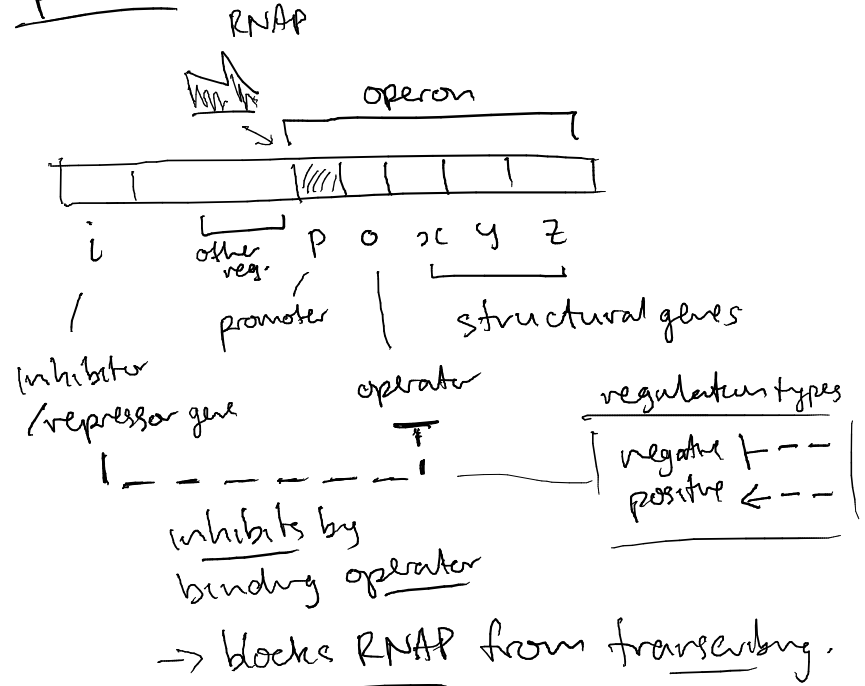 RNAP
operon
i
other reg.
p o x y z
promoter
structural genes
inhibitor
/repressor gene
operator
regulation types
negative ⊢--
positive ←--
inhibits by
binding operator
→ blocks RNAP from transcribing.